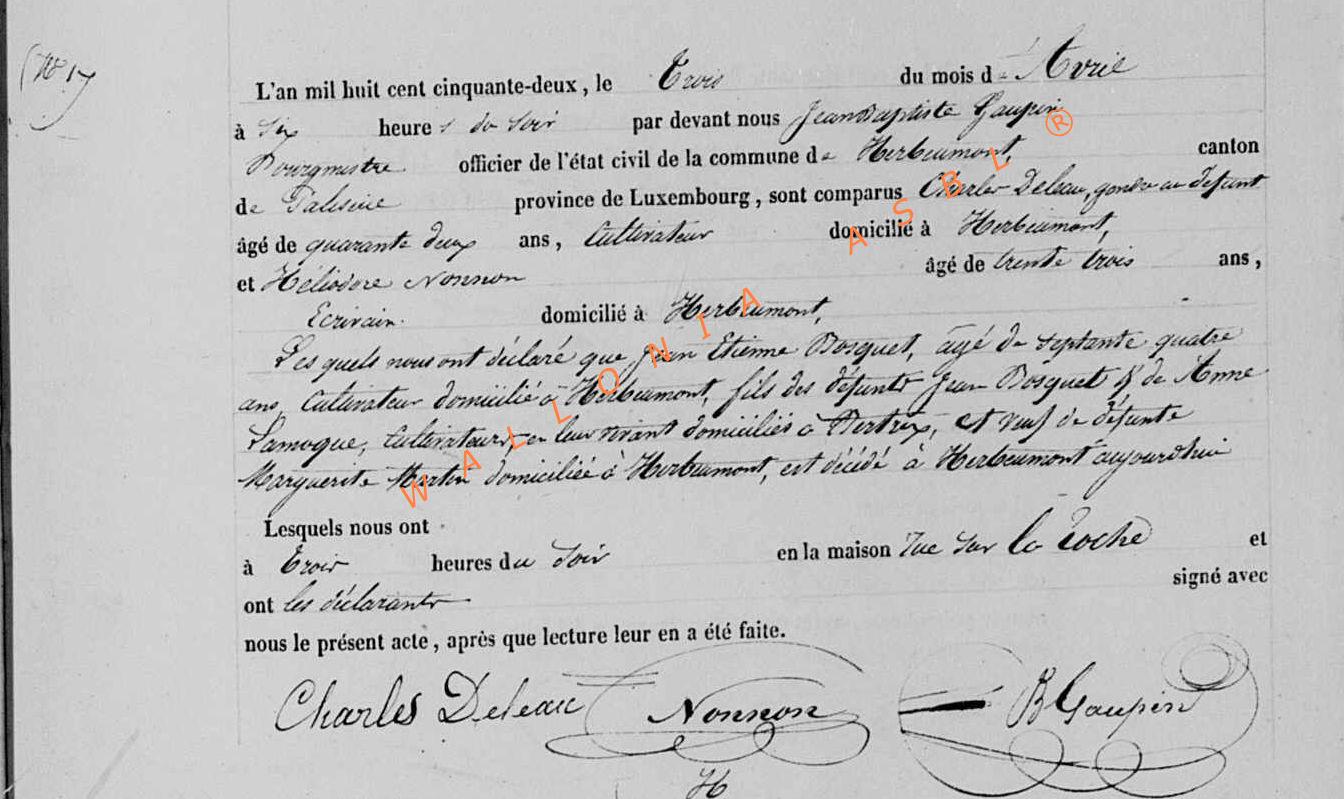 (N° 17
L'an mil huit cent cinquante-deux, le Trois du mois de Avril
à six heures du soir par devant nous Jean Baptiste Gaupin
Bourgmestre officier de l'état civil de la commune de Herbeumont, canton
de Paliseul province de Luxembourg, sont comparus Charles Deleau, gendre au défunt
âgé de quarante deux ans, Cultivateur domicilié à Herbeumont,
et Héliodore Nonnon âgé de trente trois ans,
Ecrivain domicilié à Herbeumont,
Les quels nous ont déclaré que Jean Etienne Bosquet, âgé de septante quatre
ans, Cultivateur domicilié à Herbeumont, fils des défunts Jean Bosquet & de Anne
Lamoque, Cultivateurs, en leur vivant domiciliés à Bertrix, et veuf de défunte
Marguerite Martin domiciliée à Herbeumont, est décédé à Herbeumont aujourd'hui
Lesquels nous ont
à Trois heures du soir en la maison rue sur la roche et
ont les déclarants signé avec
nous le présent acte, après que lecture leur en a été faite.
Charles Deleau Nonnon B Gaupin
H
WALLONIA ASBL ®